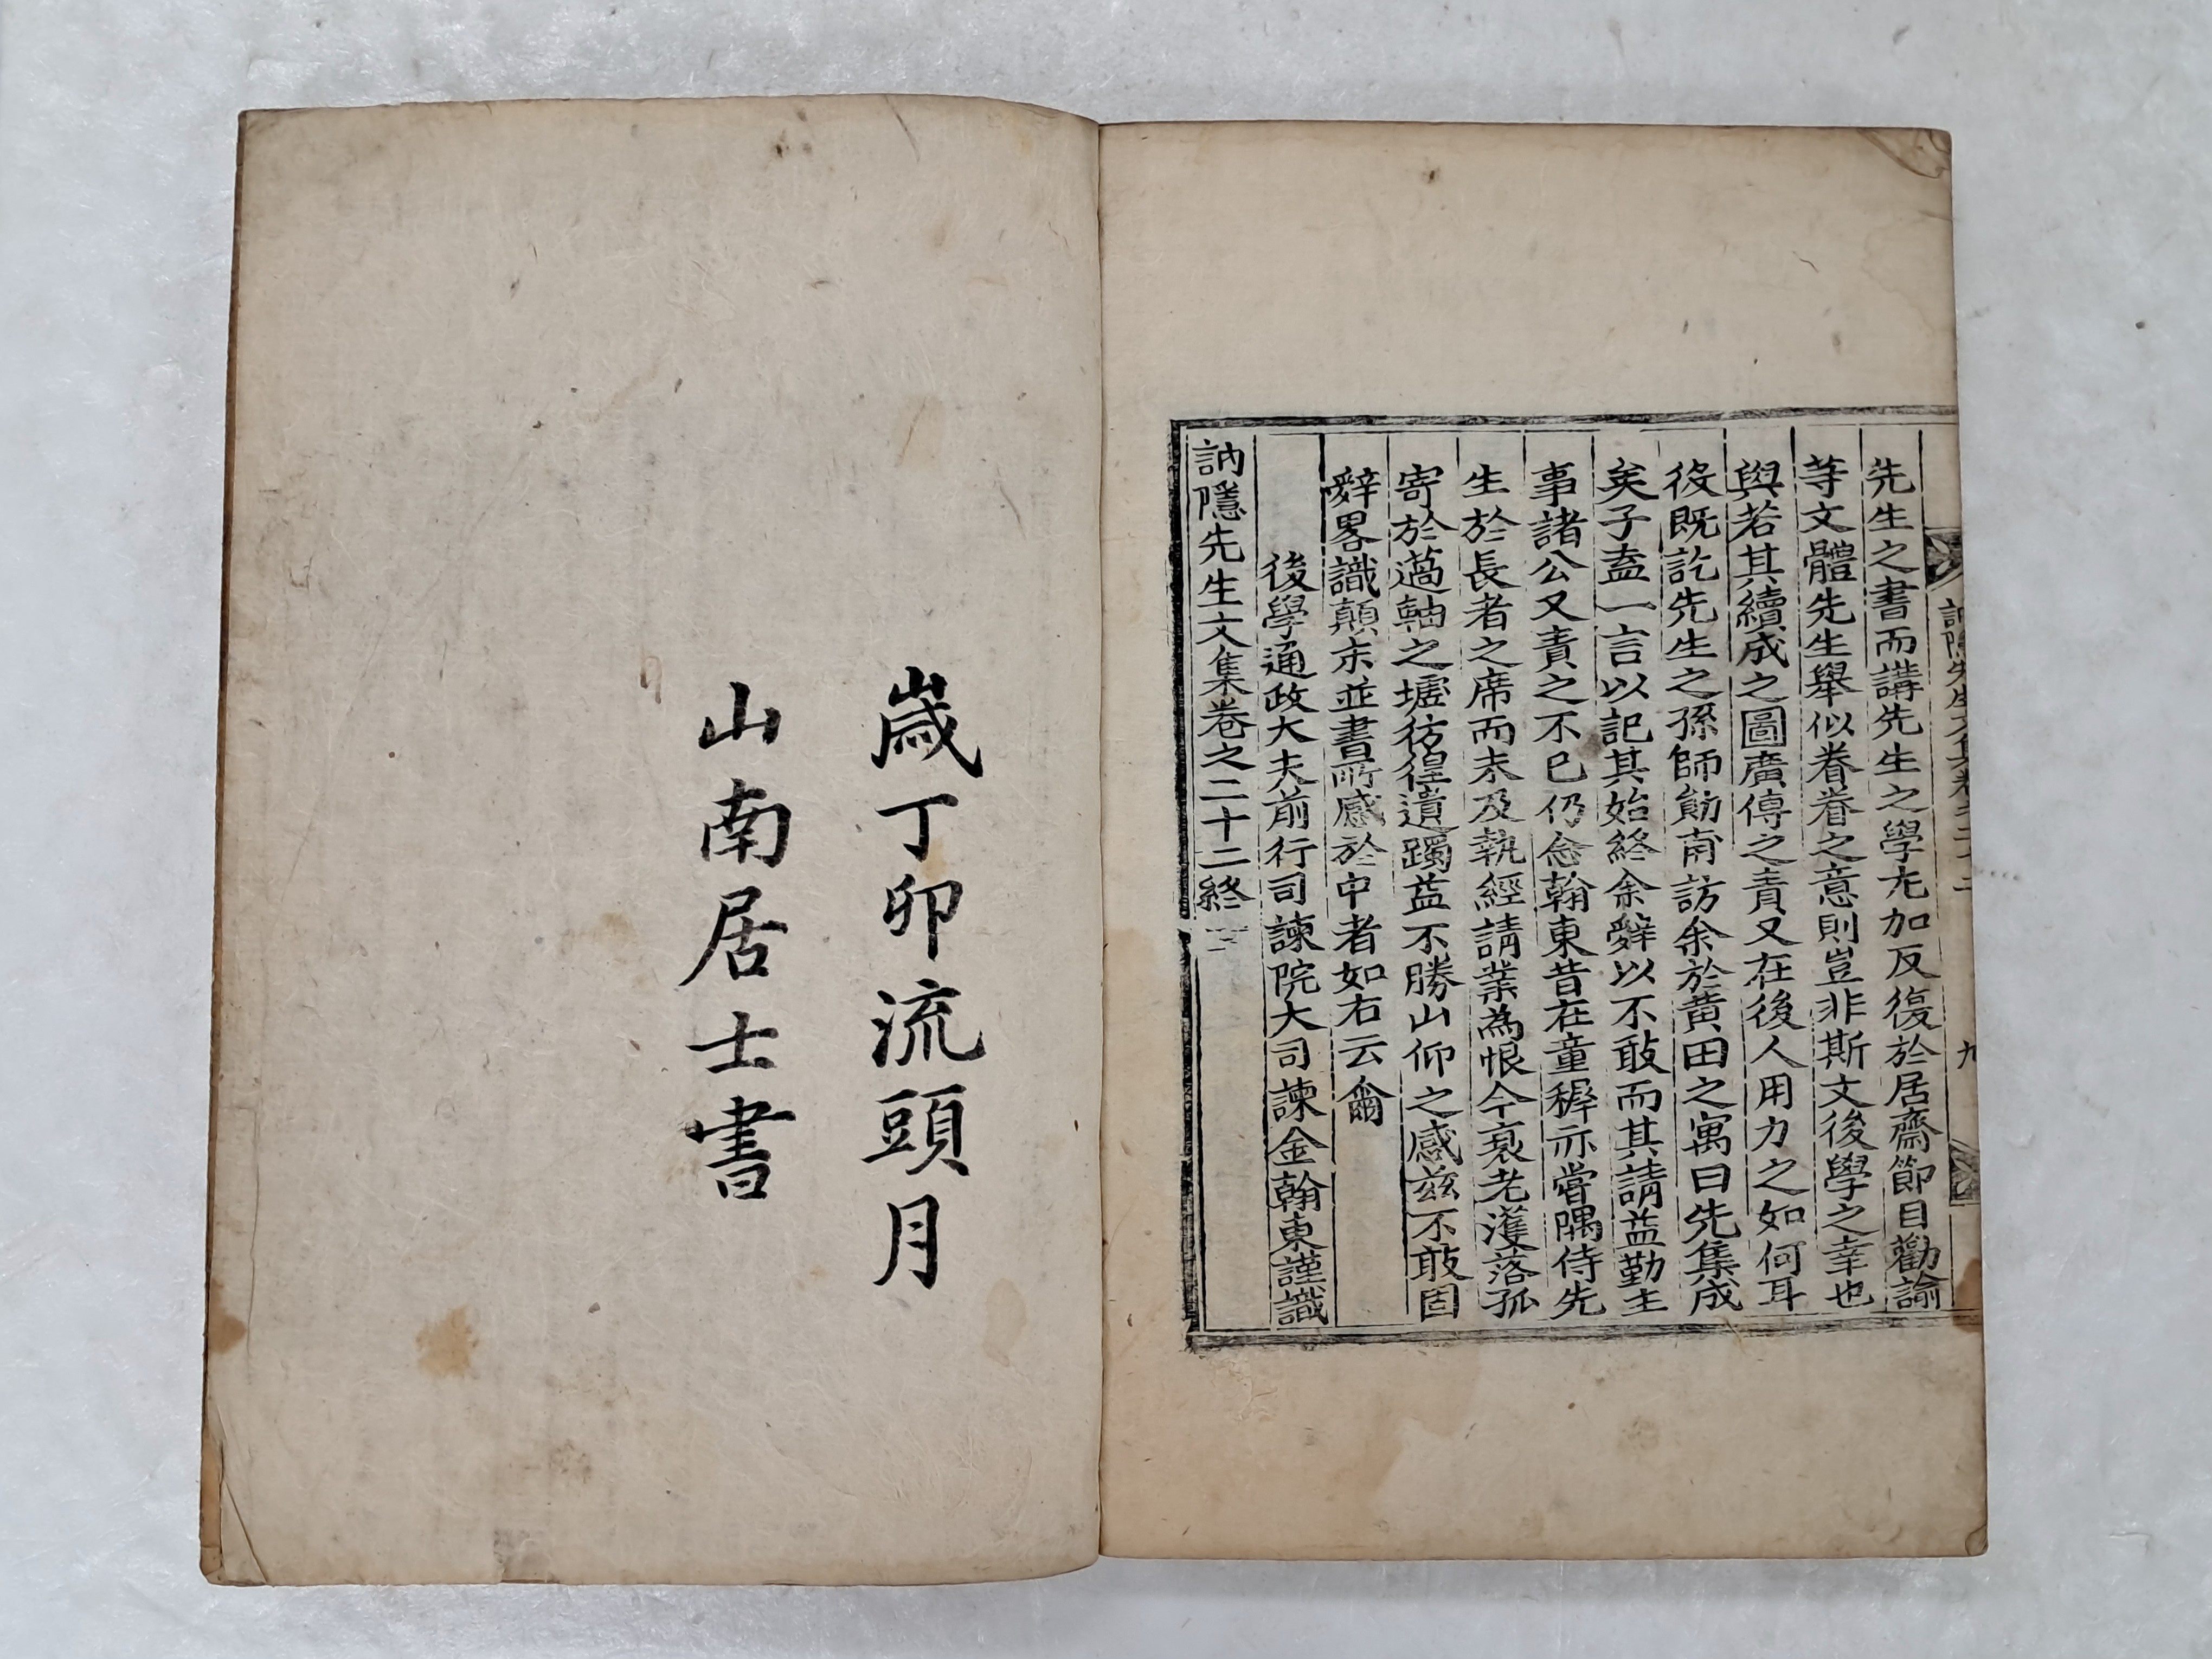 先生之書而講先生之學尤加反復於居齋節目勸諭
等文體先生舉似眷眷之意則豈非斯文後學之幸也
與若其續成之圖廣傳之責又在後人用力之如何耳
役既訖先生之孫師勛甫訪余於黄田之寓曰先集成
矣子盍一言以記其始終余辭以不敢而其請益勤主
事諸公又責之不已仍念翰東昔在童穉亦嘗隅侍先
生於長者之席而未及執經請業為恨今衰老濩落孤
寄於薖軸之墟彷徨遺躅益不勝山仰之感玆不敢固
辭畧識顛末並書所感於中者如右云爾
後學通政大夫前行司諫院大司諫金翰東謹識
訥隱先生文集卷之二十二終
訥隱先生文集卷之二十二 九
歲丁卯流頭月
山南居士書